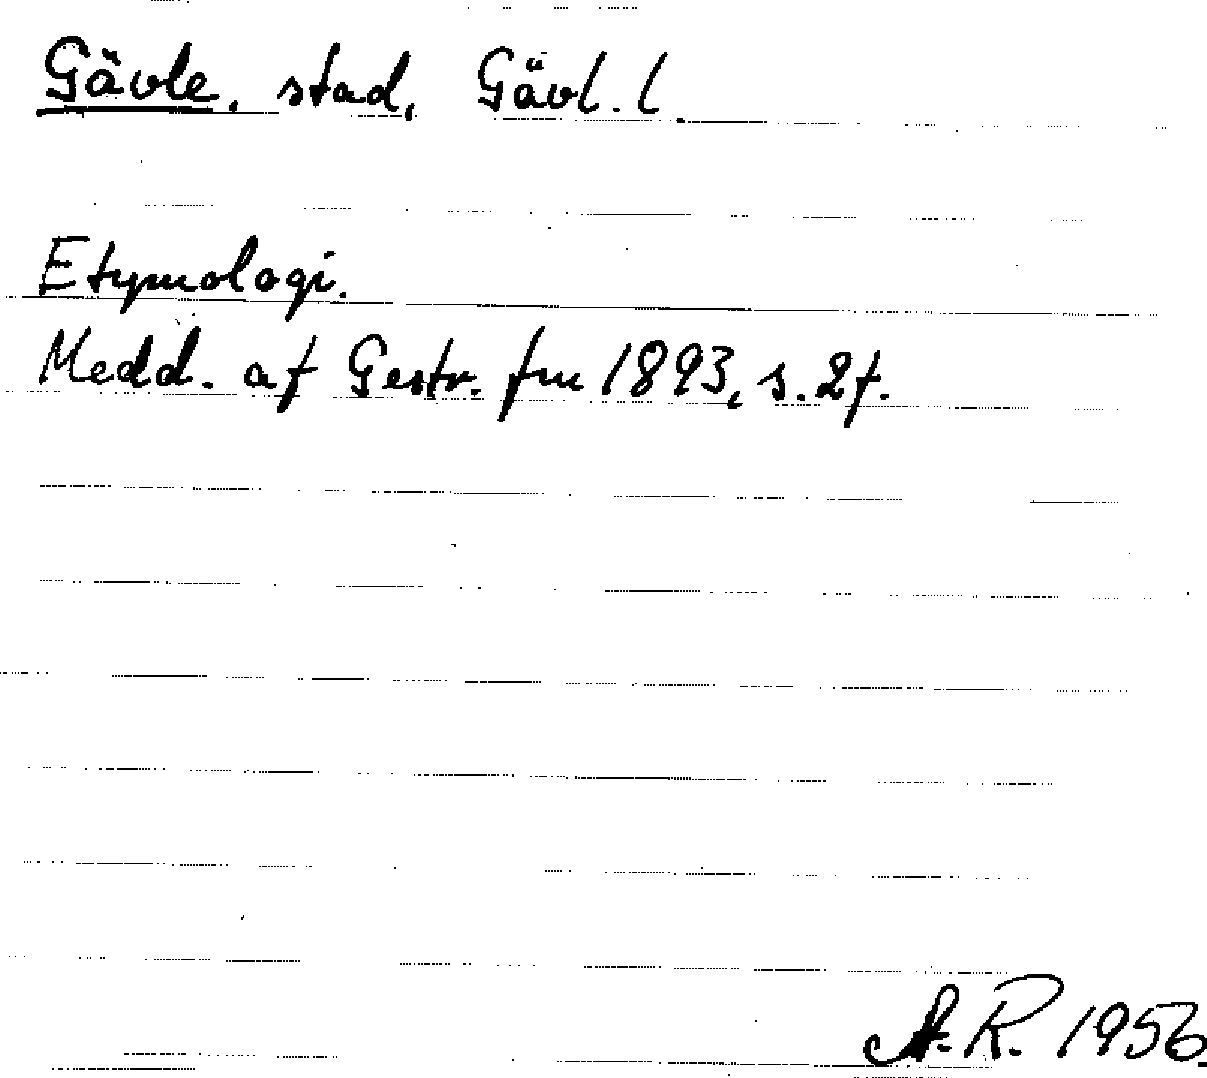 Gävle, stad, Gävl. l.
Etymologi.
Medd. af Gestr. fm 1893, s. 2f.
A.R. 1956.